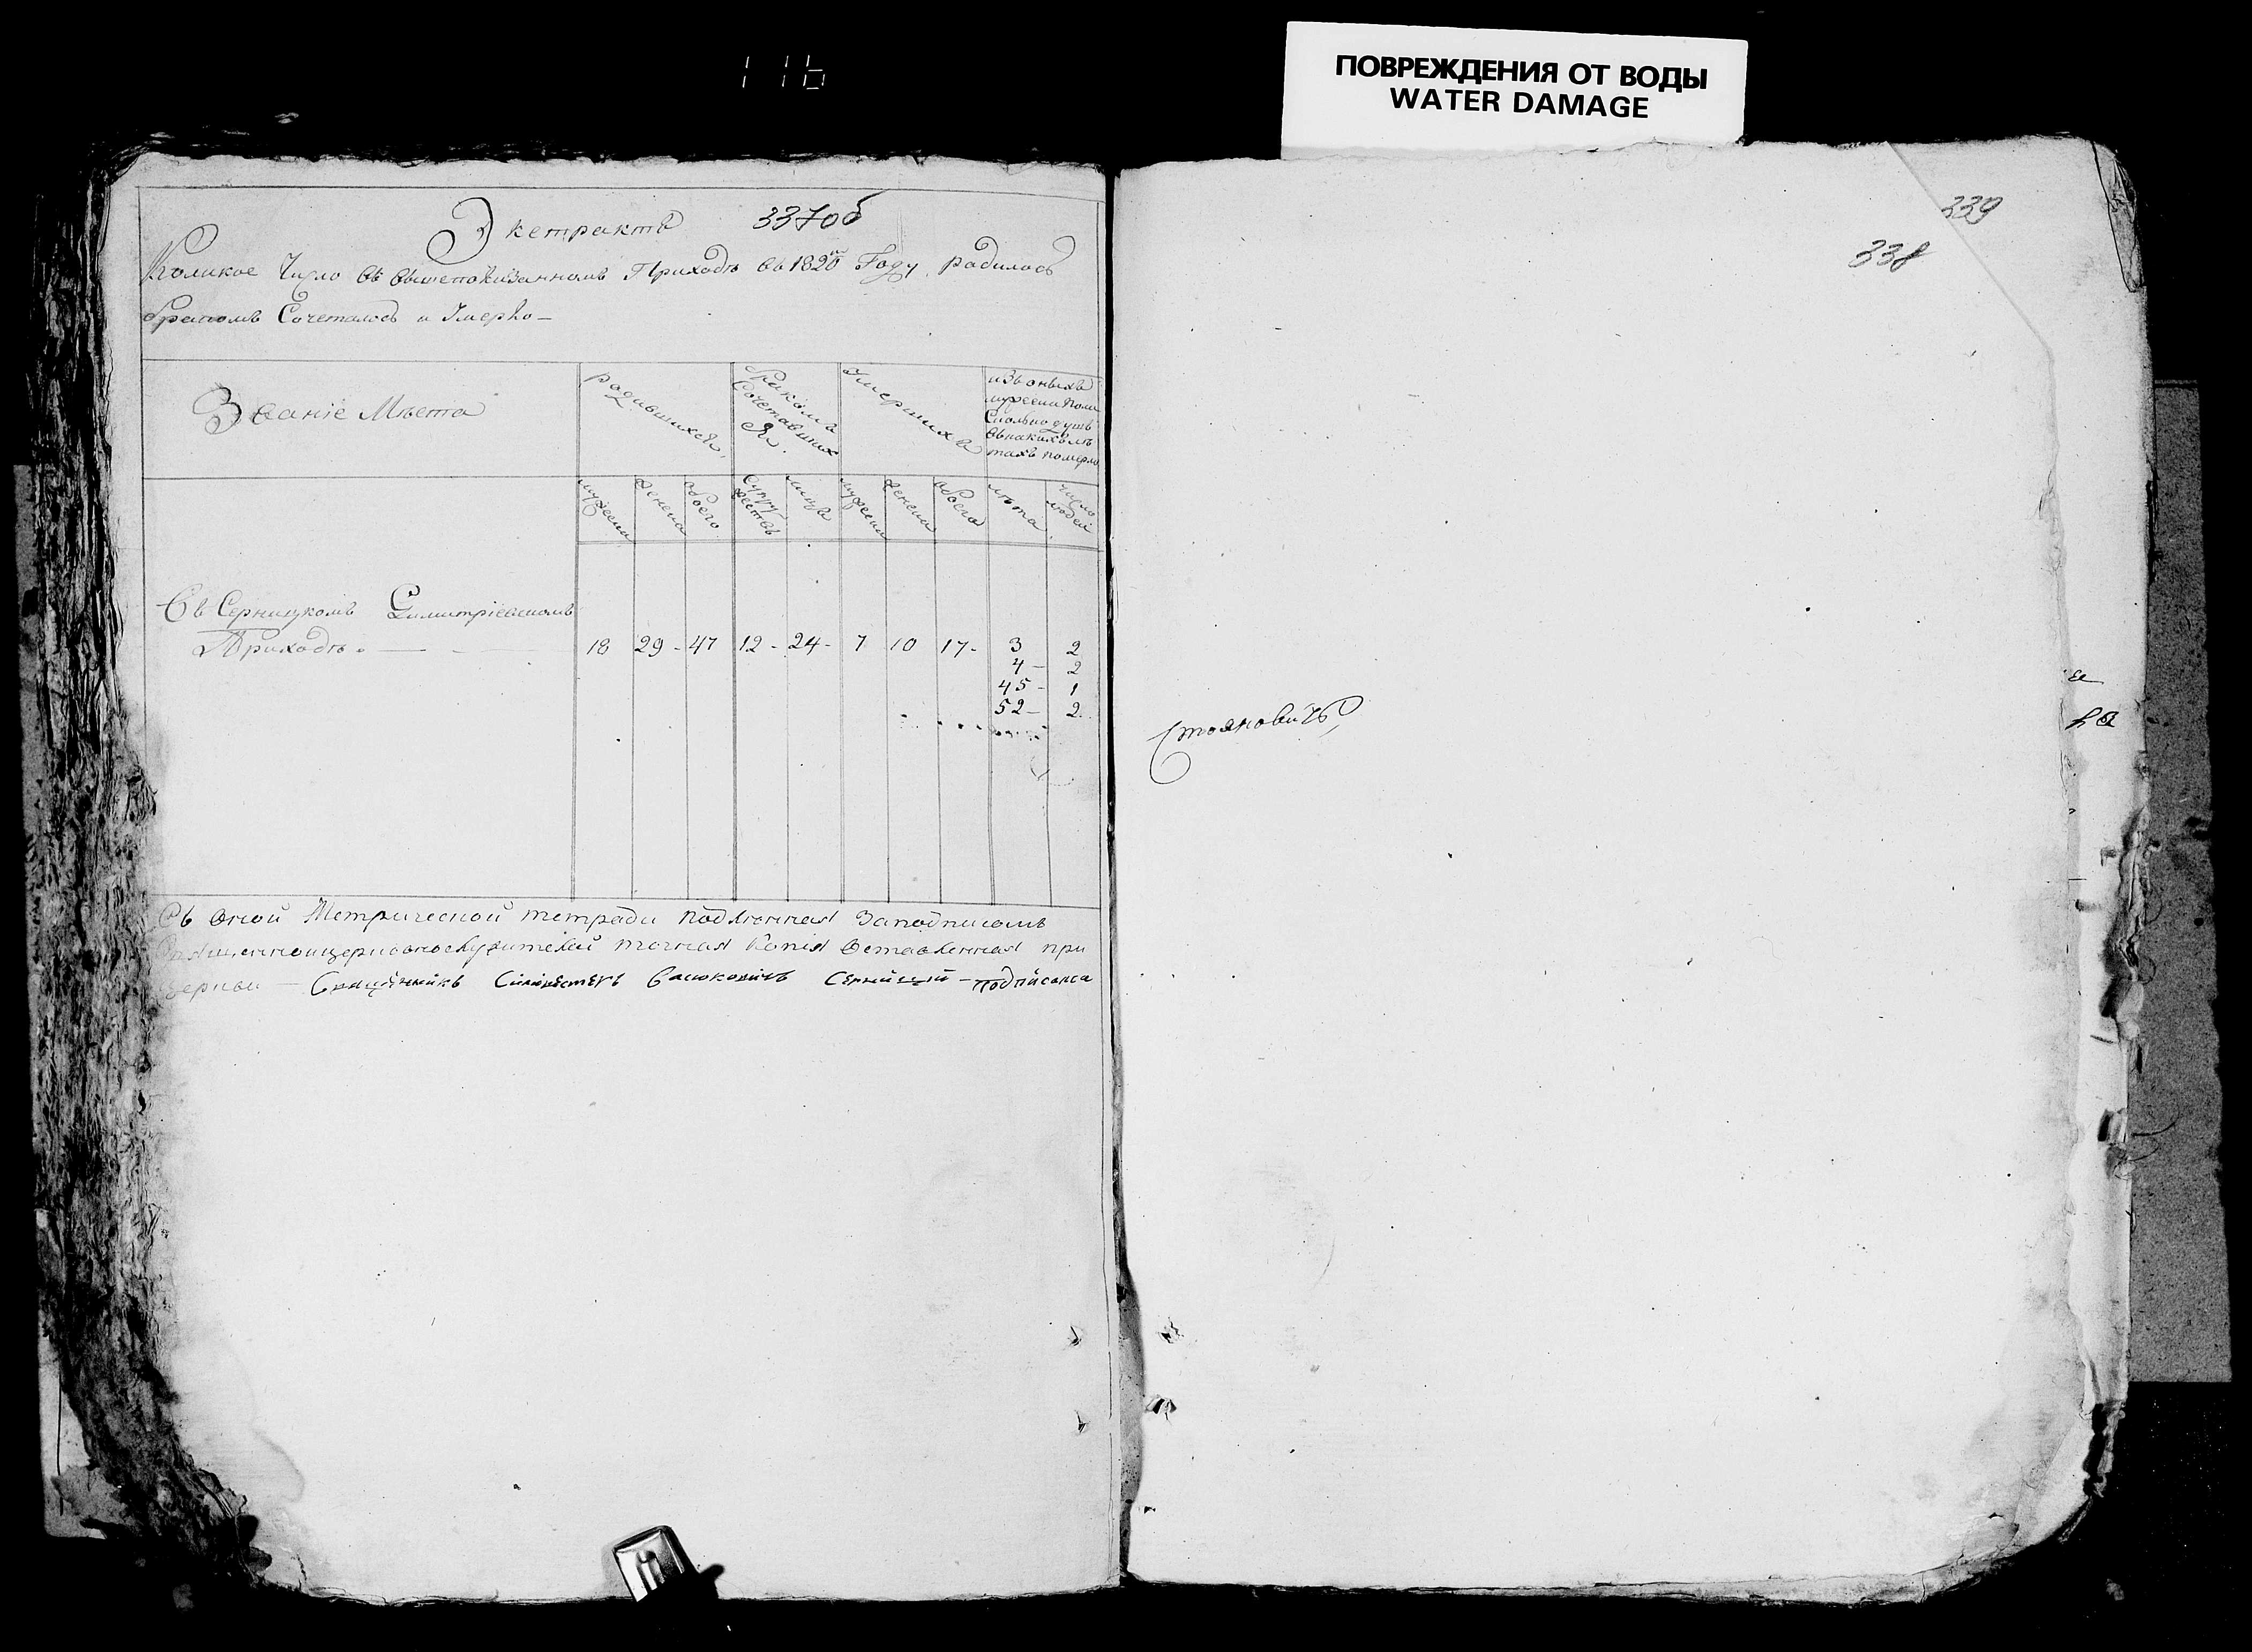 116
ПОВРЕЖДЕНИЯ ОТ ВОДЫ
WATER DAMAGE
Экстрактъ 337об
Коликое Число въ вышепоказанномъ Приходѣ въ 1820м Году родилось
бракомъ Сочеталось и Умерло —
Званіе Мѣста
родившихся
бракомъ Сочетавшихся
Умершихъ
изъ оныхъ
мужеска пола
Сколько душъ
въ какихъ лѣ
тахъ померло
мужеска женска обоего Супружествъ лица мужеска женска обоего лѣта число людей
Въ Серницкомъ Димитріевскомъ
Приходѣ — 18 29 - 47 12 - 24 - 7 10 17 - 3 2
4 — 2
45 - 1
52 — 2
Съ оной Метрической тетради подлинная За подписомъ
Священноцерковнослужителей точная копія оставленная при
церкви — Священникъ Силвестеръ Васюковичъ Серницкій — подписался
339
338
Стояновичъ